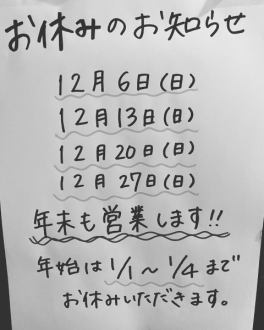 お休みのお知らせ
12月6日(日)
12月13日(日)
12月20日(日)
12月27日(日)
年末も営業します!!
年始は1/1〜1/4まで
お休みいただきます。